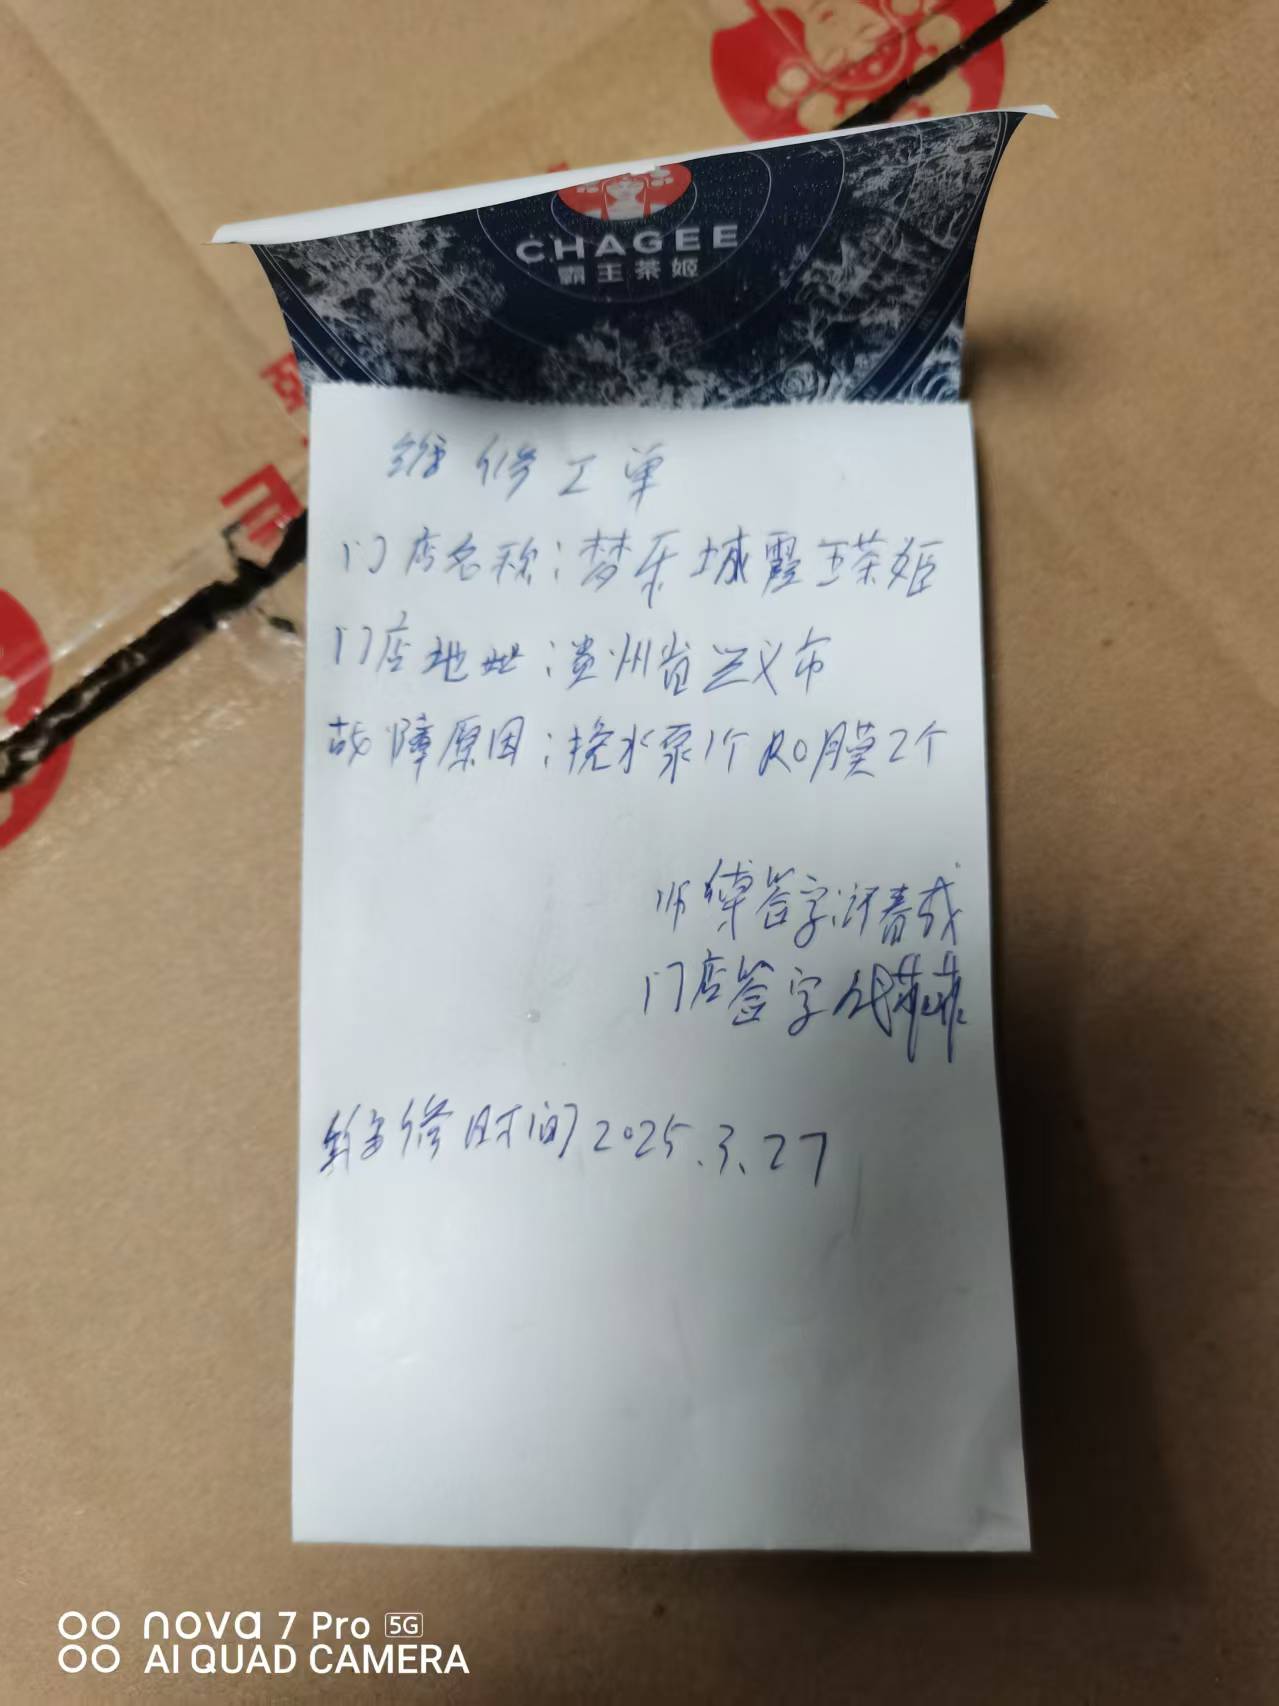 CHAGEE
霸王茶姬
维修工单
门店名称:梦乐城霸王茶姬
门店地址:贵州省兴义市
故障原因:换水泵1个RO膜2个
师傅签字:许春成
门店签字
维修时间2025.3.27
nova 7 Pro 5G
AI QUAD CAMERA